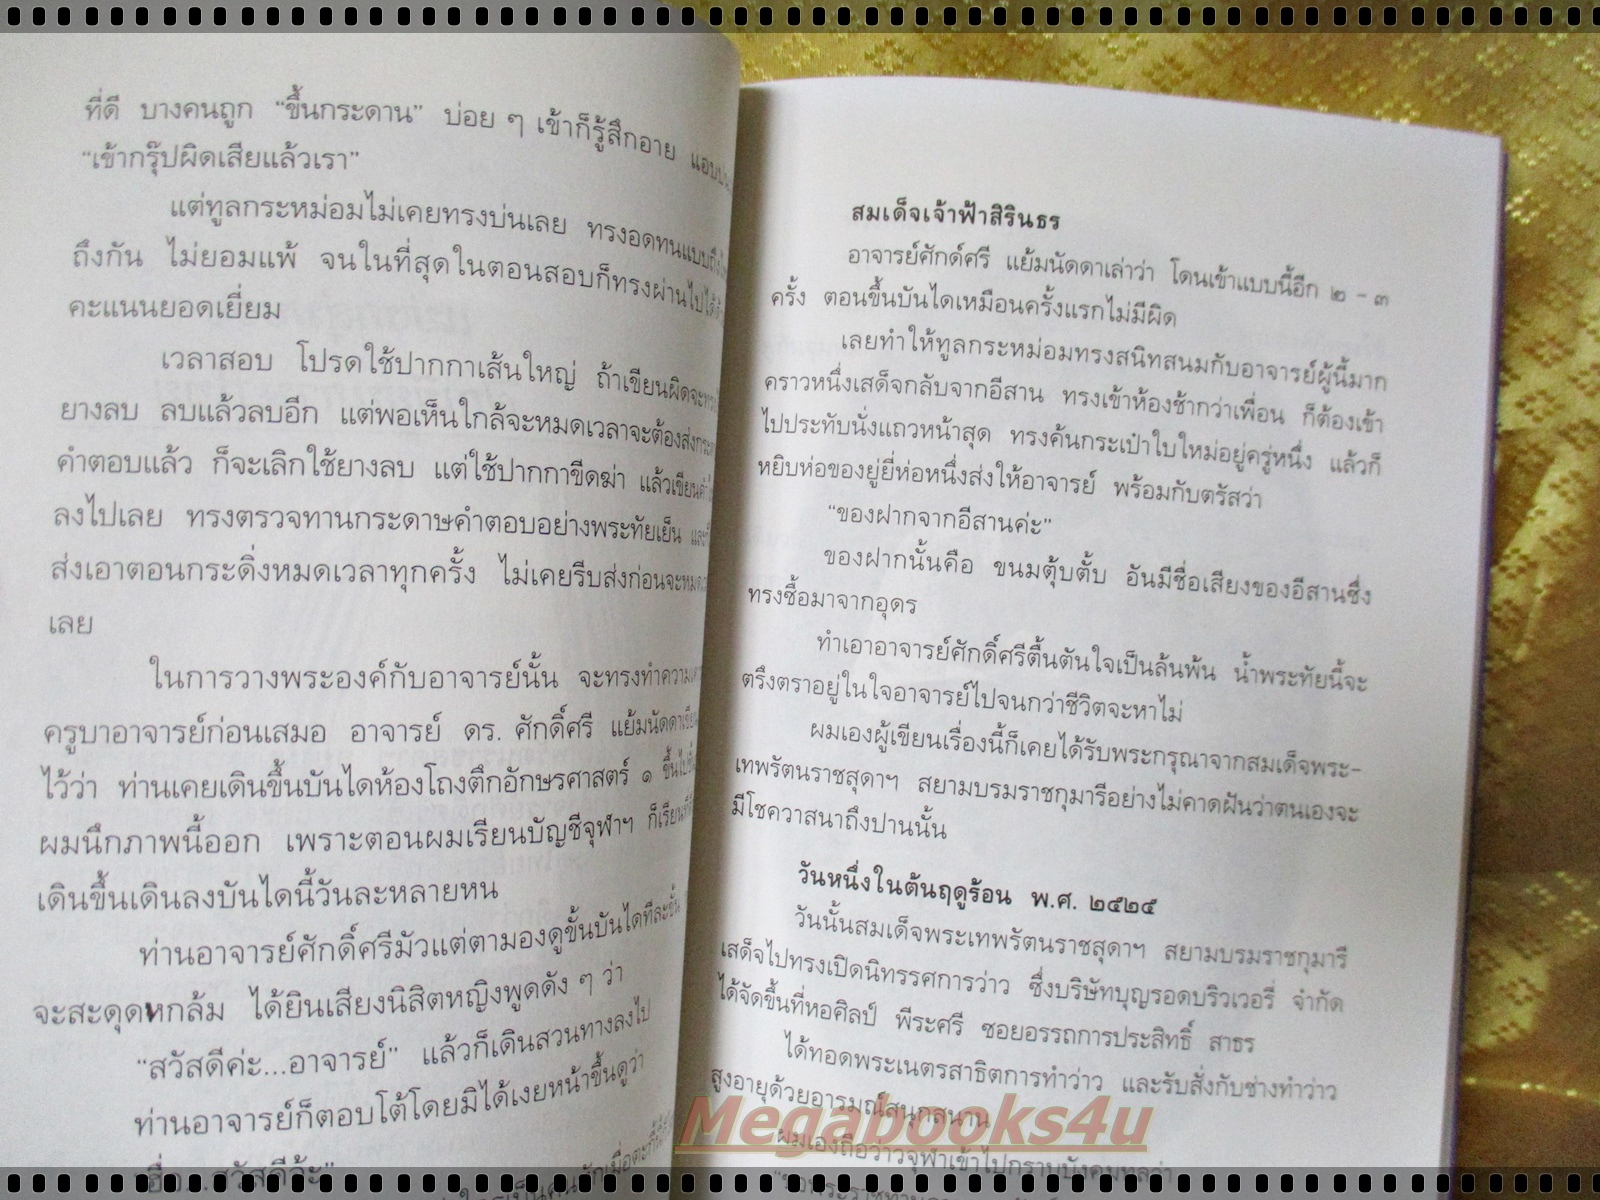 ที่ดี บางคนถูก "ขึ้นกระดาน" บ่อย ๆ เข้าก็รู้สึกอาย
"เข้ากรุ๊ปผิดเสียแล้วเรา"
แต่ทูลกระหม่อมไม่เคยทรงบ่นเลย ทรงอดทนแบบ
ถึงกัน ไม่ยอมแพ้ จนในที่สุดในตอนสอบก็ทรงผ่านไปได้
คะแนนยอดเยี่ยม
เวลาสอบ โปรดใช้ปากกาเส้นใหญ่ ถ้าเขียนผิดจะ
ยางลบ ลบแล้วลบอีก แต่พอเห็นใกล้จะหมดเวลาจะต้องส่ง
คำตอบแล้ว ก็จะเลิกใช้ยางลบ แต่ใช้ปากกาขีดฆ่า แล้วเขียน
ลงไปเลย ทรงตรวจทานกระดาษคำตอบอย่างพระทัยเย็น
ส่งเอาตอนกระดิ่งหมดเวลาทุกครั้ง ไม่เคยรีบส่งก่อนจะหมด
เลย
ในการวางพระองค์กับอาจารย์นั้น จะทรงทำความ
ครูบาอาจารย์ก่อนเสมอ อาจารย์ ดร. ศักดิ์ศรี แย้มนัดดา
ไว้ว่า ท่านเคยเดินขึ้นบันไดห้องโถงตึกอักษรศาสตร์ ๑
ผมนึกภาพนี้ออก เพราะตอนผมเรียนบัญชีจุฬาฯ ก็เรียน
เดินขึ้นเดินลงบันไดนี้วันละหลายหน
ท่านอาจารย์ศักดิ์ศรีมัวแต่ตามองดูขั้นบันไดทีละขั้น
จะสะดุดหกล้ม ได้ยินเสียงนิสิตหญิงพูดดัง ๆ ว่า
"สวัสดีค่ะ...อาจารย์" แล้วก็เดินสวนทางลงไป
ท่านอาจารย์ก็ตอบโต้โดยมิได้เงยหน้าขึ้นดูว่า
สมเด็จเจ้าฟ้าสิรินธร
อาจารย์ศักด์ศรี แย้มนัดดาเล่าว่า โดนเข้าแบบนี้อีก ๒ - ๓
ครั้ง ตอนขึ้นบันไดเหมือนครั้งแรกไม่มีผิด
เลยทำให้ทูลกระหม่อมทรงสนิทสนมกับอาจารย์ผู้นี้มาก
คราวหนึ่งเสด็จกลับจากอีสาน ทรงเข้าห้องช้ากว่าเพื่อน ก็ต้องเข้า
ไปประทับนั่งแถวหน้าสุด ทรงค้นกระเป๋าใบใหม่อยู่ครู่หนึ่ง แล้วก็
หยิบห่อของยู่ยี่ห่อหนึ่งส่งให้อาจารย์ พร้อมกับตรัสว่า
"ของฝากจากอีสานค่ะ"
ของฝากนั้นคือ ขนมตุ้บตั้บ อันมีชื่อเสียงของอีสานซึ่ง
ทรงซื้อมาจากอุดร
ทำเอาอาจารย์ศักดิ์ศรีตื้นตันใจเป็นล้นพ้น น้ำพระทัยนี้จะ
ตรึงตราอยู่ในใจอาจารย์ไปจนกว่าชีวิตจะหาไม่
ผมเองผู้เขียนเรื่องนี้ก็เคยได้รับพระกรุณาจากสมเด็จพระ-
เทพรัตนราชสุดาฯ สยามบรมราชกุมารีอย่างไม่คาดฝันว่าตนเองจะ
มีโชควาสนาถึงปานนั้น
วันหนึ่งในต้นฤดูร้อน พ.ศ. ๒๕๒๕
วันนั้นสมเด็จพระเทพรัตนราชสุดาฯ สยามบรมราชกุมารี
เสด็จไปทรงเปิดนิทรรศการว่าว ซึ่งบริษัทบุญรอดบริวเวอรี่ จำกัด
ได้จัดขึ้นที่หอศิลป์ พีระศรี ซอยอรรถการประสิทธิ์ สาธร
ได้ทอดพระเนตรสาธิตการทำว่าว และรับสั่งกับช่างทำว่าว
สูงอายุด้วยอารมณ์สนุกสนาน
Megabooks4u